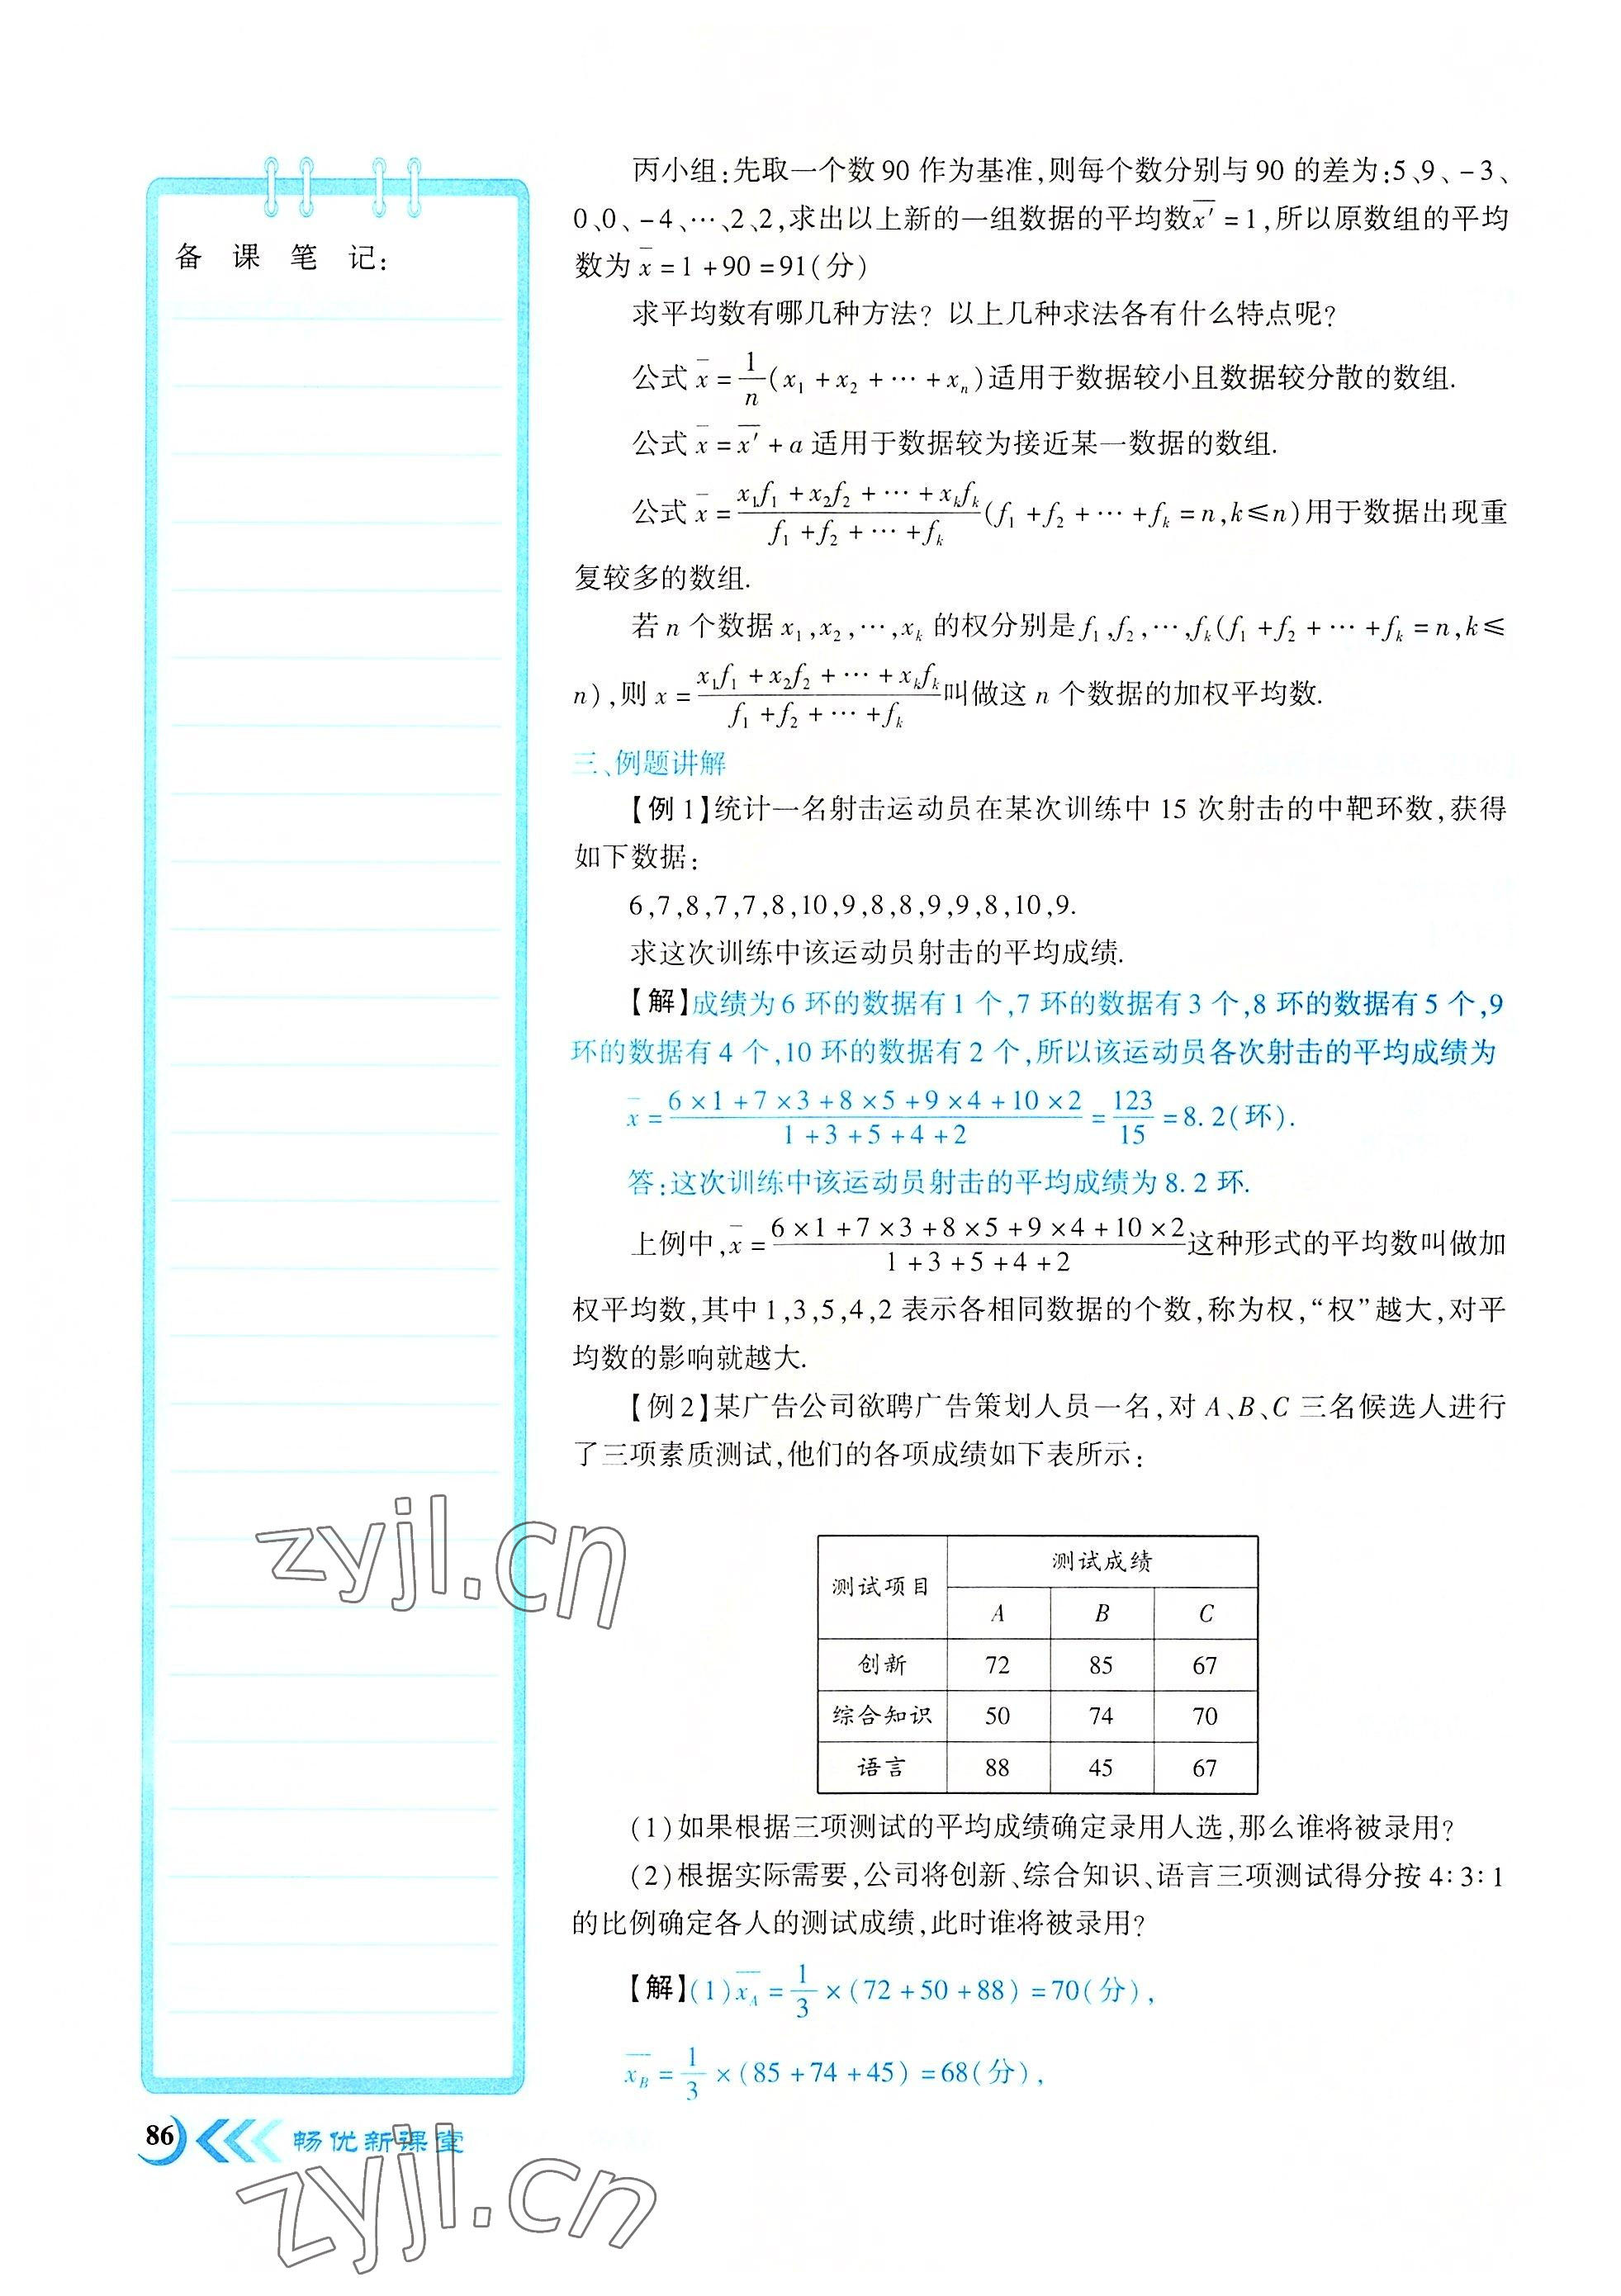 备 课 笔 记：
丙小组：先取一个数 90 作为基准，则每个数分别与 90 的差为：5、9、-3、
0、0、-4、…、2、2，求出以上新的一组数据的平均数x̅′=1，所以原数组的平均
数为x̅=1+90=91(分)
求平均数有哪几种方法？以上几种求法各有什么特点呢？
公式x̅=1/n(x₁+x₂+…+xₙ)适用于数据较小且数据较分散的数组.
公式x̅=x̅′+a 适用于数据较为接近某一数据的数组.
公式x̅=(x₁f₁+x₂f₂+…+xₖfₖ)/(f₁+f₂+…+fₖ)(f₁+f₂+…+fₖ=n,k≤n)用于数据出现重
复较多的数组.
若 n 个数据 x₁,x₂,…,xₖ 的权分别是 f₁,f₂,…,fₖ(f₁+f₂+…+fₖ=n,k≤
n)，则 x=(x₁f₁+x₂f₂+…+xₖfₖ)/(f₁+f₂+…+fₖ)叫做这 n 个数据的加权平均数.
三、例题讲解
【例 1】统计一名射击运动员在某次训练中 15 次射击的中靶环数，获得
如下数据：
6,7,8,7,7,8,10,9,8,8,9,9,8,10,9.
求这次训练中该运动员射击的平均成绩.
【解】成绩为 6 环的数据有 1 个，7 环的数据有 3 个，8 环的数据有 5 个，9
环的数据有 4 个，10 环的数据有 2 个，所以该运动员各次射击的平均成绩为
x̅=(6×1+7×3+8×5+9×4+10×2)/(1+3+5+4+2)=123/15=8.2(环).
答：这次训练中该运动员射击的平均成绩为 8.2 环.
上例中，x̅=(6×1+7×3+8×5+9×4+10×2)/(1+3+5+4+2)这种形式的平均数叫做加
权平均数，其中 1,3,5,4,2 表示各相同数据的个数，称为权，“权”越大，对平
均数的影响就越大.
【例 2】某广告公司欲聘广告策划人员一名，对 A、B、C 三名候选人进行
了三项素质测试，他们的各项成绩如下表所示：
测试项目 测试成绩
A B C
创新 72 85 67
综合知识 50 74 70
语言 88 45 67
(1)如果根据三项测试的平均成绩确定录用人选，那么谁将被录用？
(2)根据实际需要，公司将创新、综合知识、语言三项测试得分按 4∶3∶1
的比例确定各人的测试成绩，此时谁将被录用？
【解】(1)x̅_A=1/3×(72+50+88)=70(分)，
x̅_B=1/3×(85+74+45)=68(分)，
86 畅优新课堂
zyjl.cn
zyjl.cn